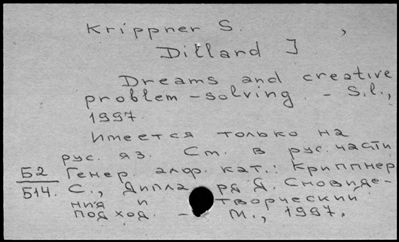 Krippner S. ,
Dillard J
Dreams and creative
problem-solving. - S.l.,
1997.
Имеется только на
рус. яз. См. в рус. части
Б2 Генер. алф. кат.: Криппнер
Б14. С., Дилла рд Д. Сновиде-
ния и творческий
подход. - М., 1997.